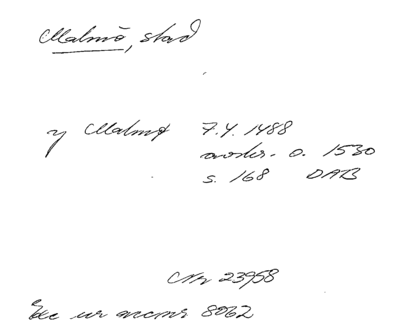 Malmö, stad
y Malmø 7.4.1488
avskr. o. 1530
s. 168 DAB
CHr 23958
Exc ur 8062